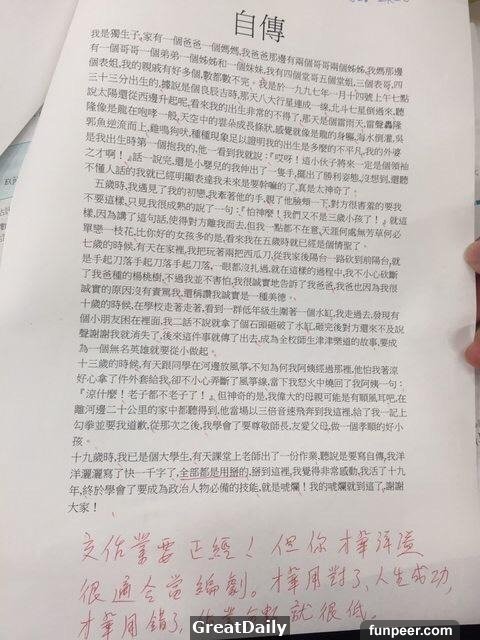 自傳
我是獨生子,家有一個爸爸一個媽媽,我爸爸那邊有兩個哥哥兩個姊姊,我媽那邊
有一個哥哥一個弟弟一個姊姊和一個妹妹,我有四個堂哥五個堂姐,三個表哥,四
個表姐,我的親戚有好多個,數都數不完。我是於一九九七年一月十四號上午七點
三十三分出生的,據說是個良辰吉時,那天八大行星連成一線,北斗七星倒過來,聽
說太陽還從西邊升起呢,看來我的出生非常的不得了,那天是個雷雨天,雷聲轟隆
隆像是龍在咆哮一般,天空中的雲朵成長條狀,感覺就像是龍的身軀,海水倒灌,吳
郭魚逆流而上,雞鳴狗吠,種種現象足以證明我的出生是多麼的不平凡,我的外婆
是我出生時第一個抱我的,他一看到我就說:『哎呀!這小伙子將來一定是個領袖
之才啊!』話一說完,還是小嬰兒的我伸出了一隻手,擺出了勝利姿態,沒想到,還聽
不懂人話的我就已經明顯表達我未來是要幹嘛的了,真是太神奇了!
五歲時,我遇見了我的初戀,我牽著他的手,親了他臉頰一下,對方很害羞的要我
不要這樣,只見我很成熟的說了一句:『怕神麼!我們又不是三歲小孩了!』就這
樣,因為講了這句話,使得對方離我而去,但我一點都不在意,天涯何處無芳草何必
單戀一枝花,比你好的女孩多的是,看來我在五歲時就已經是個情聖了。
七歲的時候,有天在家裡,我把玩著兩把西瓜刀,從我家後陽台一路砍到前陽台,就
是手起刀落手起刀落手起刀落,一眼都沒扎過,就在這樣的過程中,我不小心砍斷
了我爸種的楊桃樹,不過我並不害怕,我很誠實地告訴了我爸爸,我爸也因為我很
誠實的原因沒有責罵我,還稱讚我誠實是一種美德。
十歲的時候,在學校走著走著,看到一群低年級生圍著一個水缸,我走過去,發現有
個小朋友困在裡面,我二話不說就拿了個石頭砸破了水缸,砸完後對方還來不及說
聲謝謝我就消失了,後來這件事就傳了出去,成為全校師生津津樂道的故事,要成
為一個無名英雄就要從小做起。
十三歲的時候,有天跟同學在河邊放風箏,不知為何我阿姨經過那裡,他怕我著涼
好心拿了件外套給我,卻不小心弄斷了風箏線,當下我怒火中燒回了我阿姨一句:
『涼什麼!老子都不老子了!』但神奇的是,我偉大的母親可能是有順風耳吧,在
離河邊二十公里的家中都聽得到,他當場以三倍音速飛奔到我這裡,給了我一記上
勾拳並要我道歉,從那次之後,我學會了要尊敬師長,友愛父母,做一個孝順的好小
孩。
十九歲時,我已是個大學生,有天課堂上老師出了一份作業,聽說是要寫自傳,我洋
洋灑灑寫了快一千字了,全部都是用掰的,掰到這裡,我覺得非常感動,我活了十九
年,終於學會了要成為政治人物必備的技能,就是唬爛!我的唬爛就到這了,謝謝
大家!
交作業要正經!但你才華洋溢
很適合當編劇。才華用對了、人生成功,
才華用錯了,作業分數就很低.
GreatDaily
funpeer.com